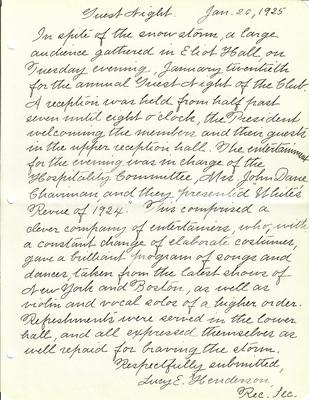 Guest Night. Jan. 20, 1925
In spite of the snow storm, a large
audience gathered in Eliot Hall, on
Tuesday evening, January twentieth
for the annual Guest Night of the Club.
A reception was held from half past
seven until eight o'clock, the President
welcoming the members and their guests
in the upper reception hall. The entertainment
for the evening was in charge of the
Hospitality Committee, Mrs. John Dane
Chairman and they presented "White's
Revue of 1924." This comprised a
clever company of entertainers, who, with
a constant change of elaborate costumes,
gave a brilliant program of songs and
dances, taken from the latest shows of
New York and Boston, as well as
violin and vocal solos of a higher order.
Refreshments were served in the lower
hall, and all expressed themselves as
well repaid for braving the storm.
Respectfully submitted,
Lucy E. Henderson,
Rec. Sec.